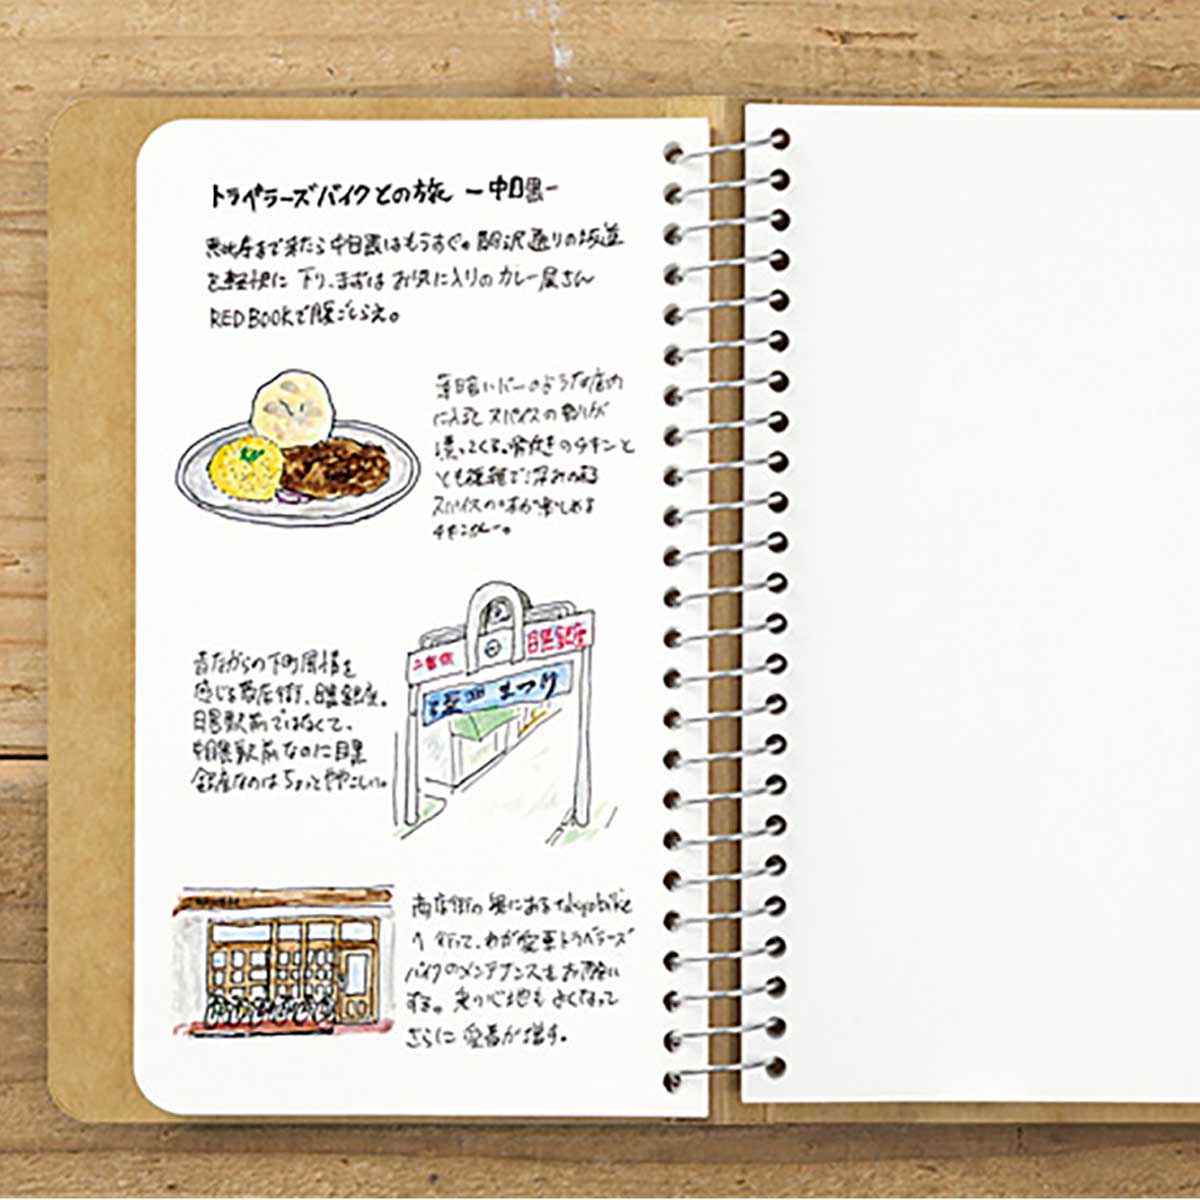 トラベラーズバイクとの旅 ー中目黒ー
恵比寿まで来たら中目黒はもうすぐ。駒沢通りの坂道
を軽快に下り、まずはお気に入りのカレー屋さん
RED BOOKで腹ごしらえ。
薄暗いバーのような店内
に入るとスパイスの香りが
漂ってくる。骨抜きのチキンと
とても複雑で深みのある
スパイスの味が楽しめる
チキンカレー。
二番街
目黒銀座
まつり
昔ながらの下町風情を
感じる商店街、目黒銀座。
目黒駅前ではなくて、
中目黒駅前なのに目黒
銀座なのはちょっとややこしい。
商店街の奥にあるtokyobike
へ行って、わが愛車トラベラーズ
バイクのメンテナンスもお願い
する。乗り心地もよくなって
さらに愛着が増す。